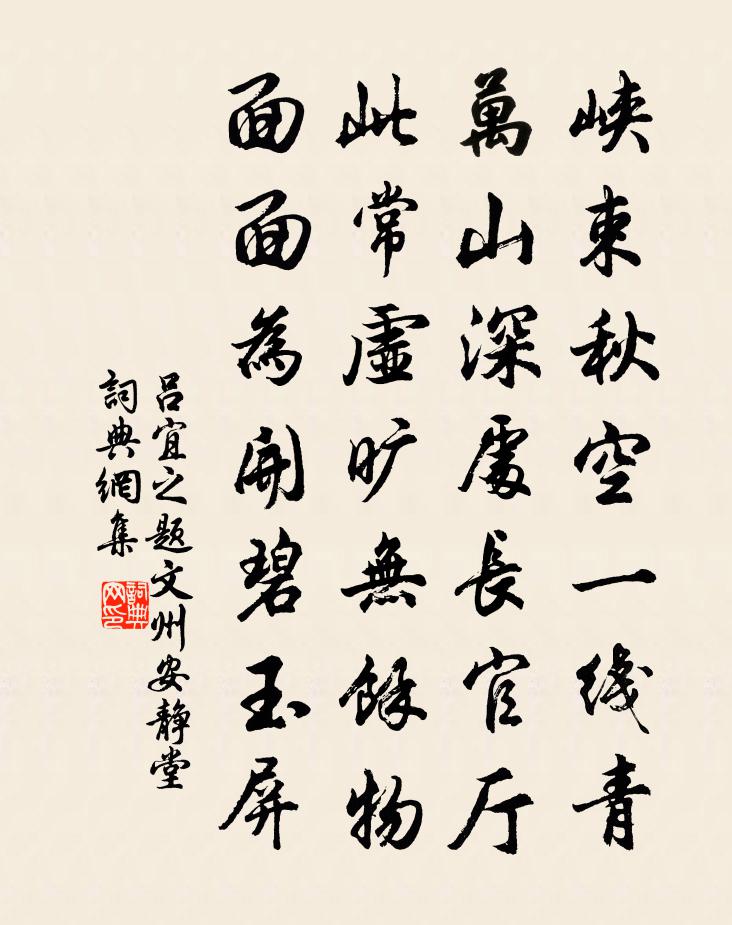 峽束秋空一线青
萬山深處長官厅
此常虛旷無餘物
面面為開碧玉屏
吕宜之题文州安靜堂
詞典網集
詞典網印